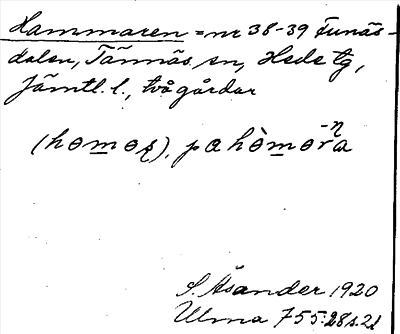 Hammaren = nr 38-39 Funäs-
dalen, Tännäs sn, Heds tg,
Jämtl. l., två gårdar
(homoʂ), pa hòmorꞃa
S. Åsander 1920
Ulma 755:28 s. 21